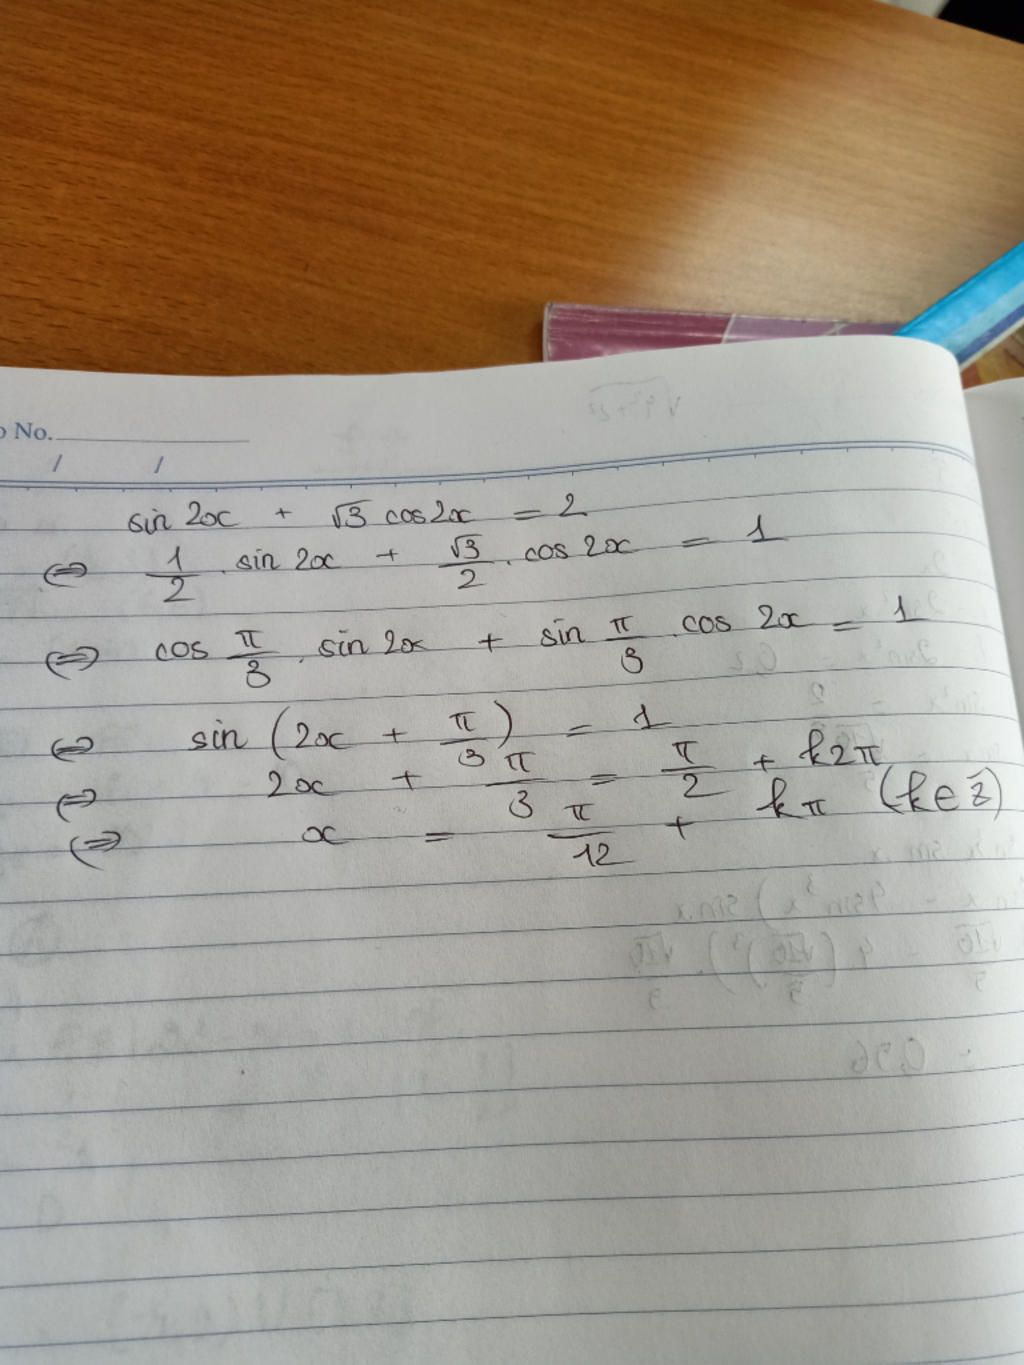 No.
/ /
sin 2x + √3 cos2x = 2
⇔ 1/2 . sin 2x + √3/2 . cos 2x = 1
⇔ cos π/3 . sin 2x + sin π/3 . cos 2x = 1
⇔ sin (2x + π/3) = 1
⇔ 2x + π/3 = π/2 + k2π
⇔ x = π/12 + kπ (k∈Z)